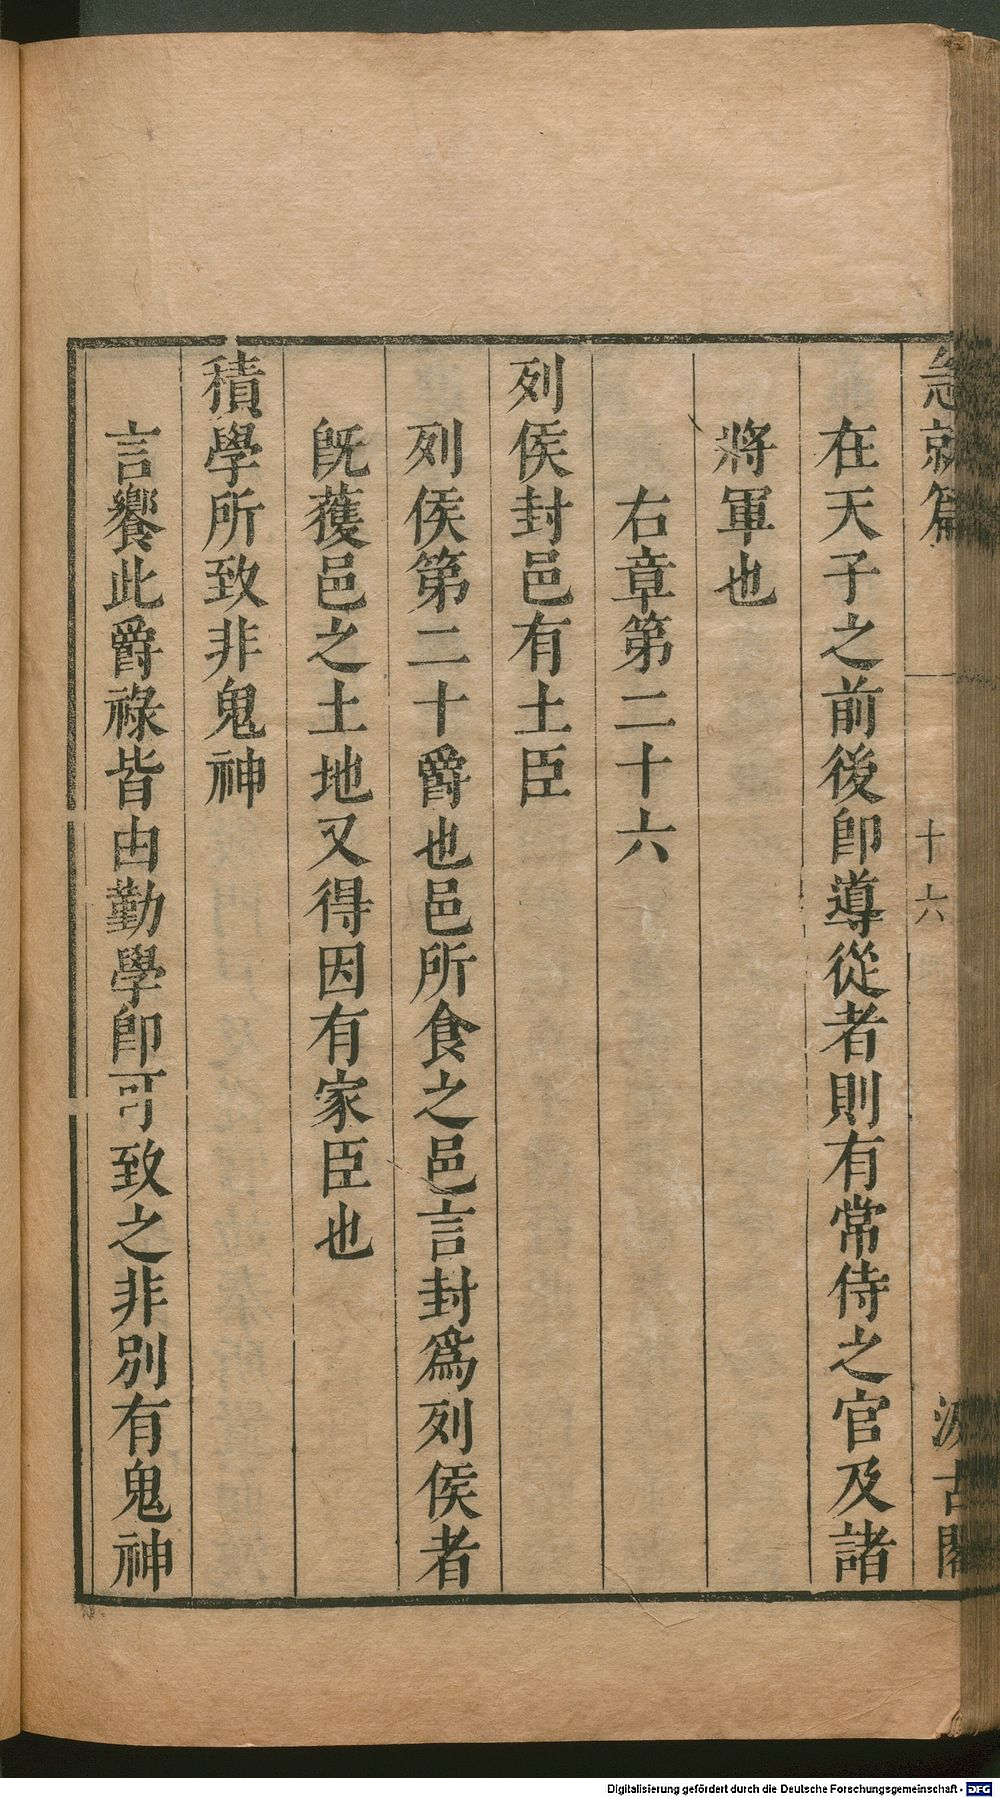 急就篇
十六
汲古閣
在天子之前後卽導從者則有常侍之官及諸
將軍也
右章第二十六
列侯封邑有土臣
列侯第二十爵也邑所食之邑言封爲列侯者
旣獲邑之土地又得因有家臣也
積學所致非鬼神
言饗此爵祿皆由勤學卽可致之非別有鬼神
Digitalisierung gefördert durch die Deutsche Forschungsgemeinschaft - DFG